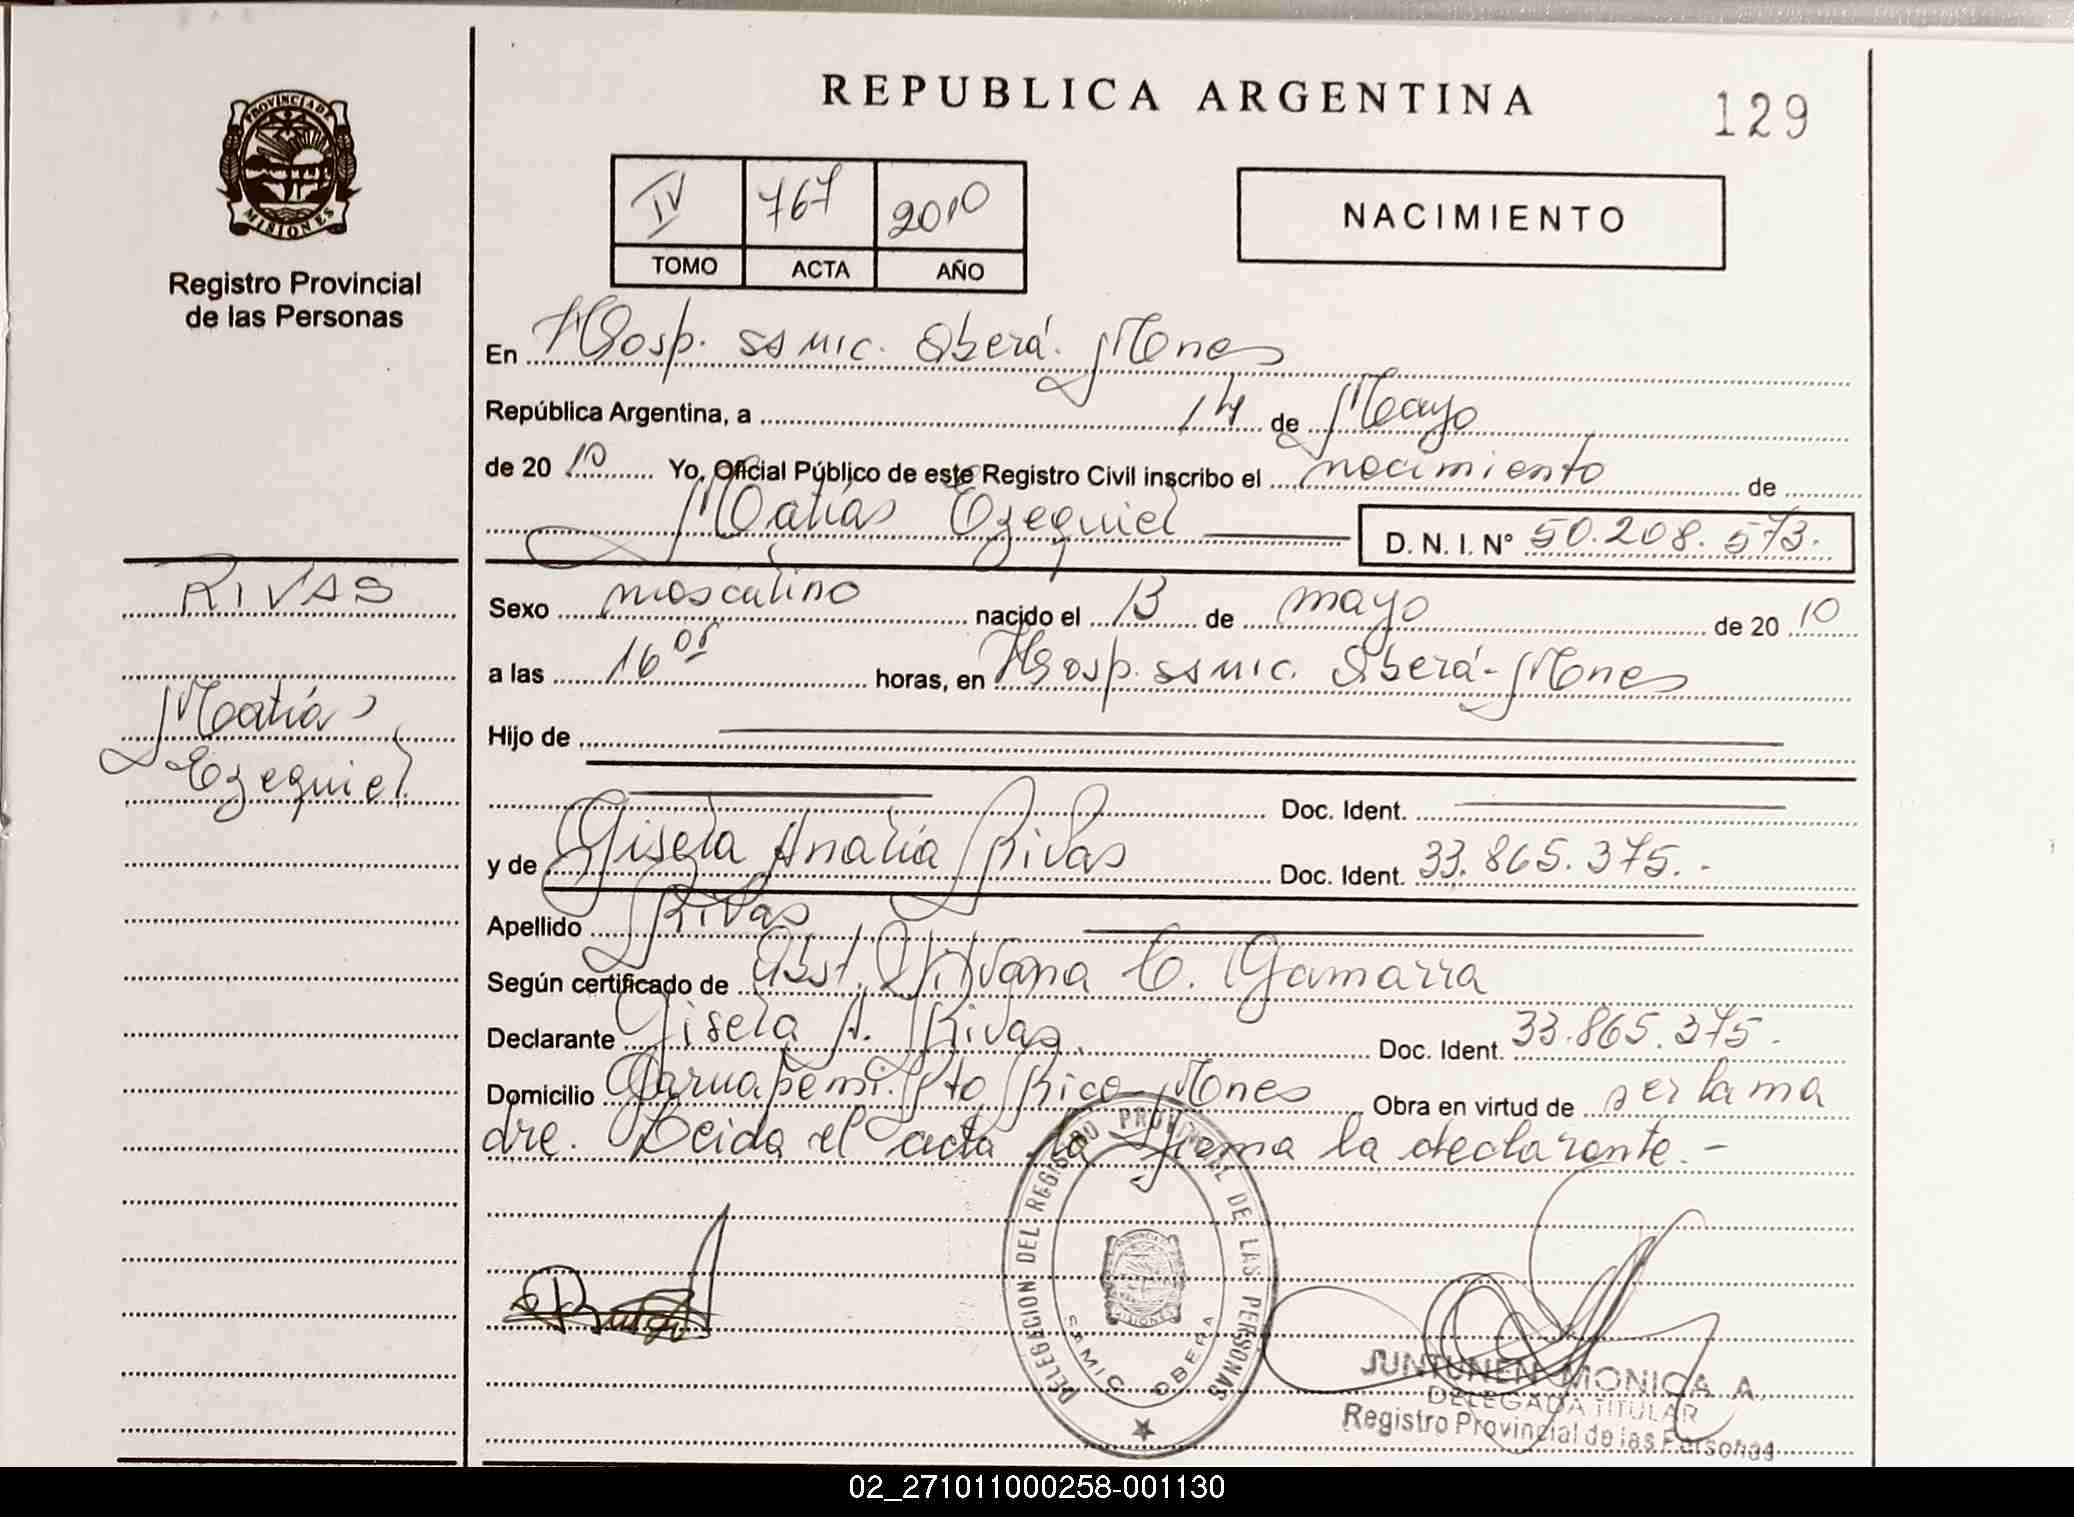 REPUBLICA ARGENTINA
129
PROVINCIA DE MISIONES
Registro Provincial
de las Personas
IV 767 2010
TOMO ACTA AÑO
NACIMIENTO
En Hosp. SAMIC. Oberá. Mnes
República Argentina, a 14 de Mayo
de 2010 Yo, Oficial Público de este Registro Civil inscribo el nacimiento de
Matías Ezequiel D. N. I. N° 50.208.573.
RIVAS
Matías
Ezequiel
Sexo masculino nacido el 13 de mayo de 2010
a las 16 horas, en Hosp. SAMIC. Oberá - Mnes
Hijo de
Doc. Ident.
y de Gisela Analía Rivas Doc. Ident. 33.865.375.-
Apellido Rivas
Según certificado de Obst. Silvana C. Gamarra
Declarante Gisela A. Rivas. Doc. Ident. 33.865.375.
Domicilio Garuhapemi. Pto Rico - Mnes Obra en virtud de ser la ma
dre. Leída el acta la firma la declarante.-
DELEGACION DEL REGISTRO PROVINCIAL DE LAS PERSONAS
PROVINCIA DE MISIONES
SAMIC OBERA
JUNTUNEN MONICA A.
DELEGADA TITULAR
Registro Provincial de las Personas
02_271011000258-001130